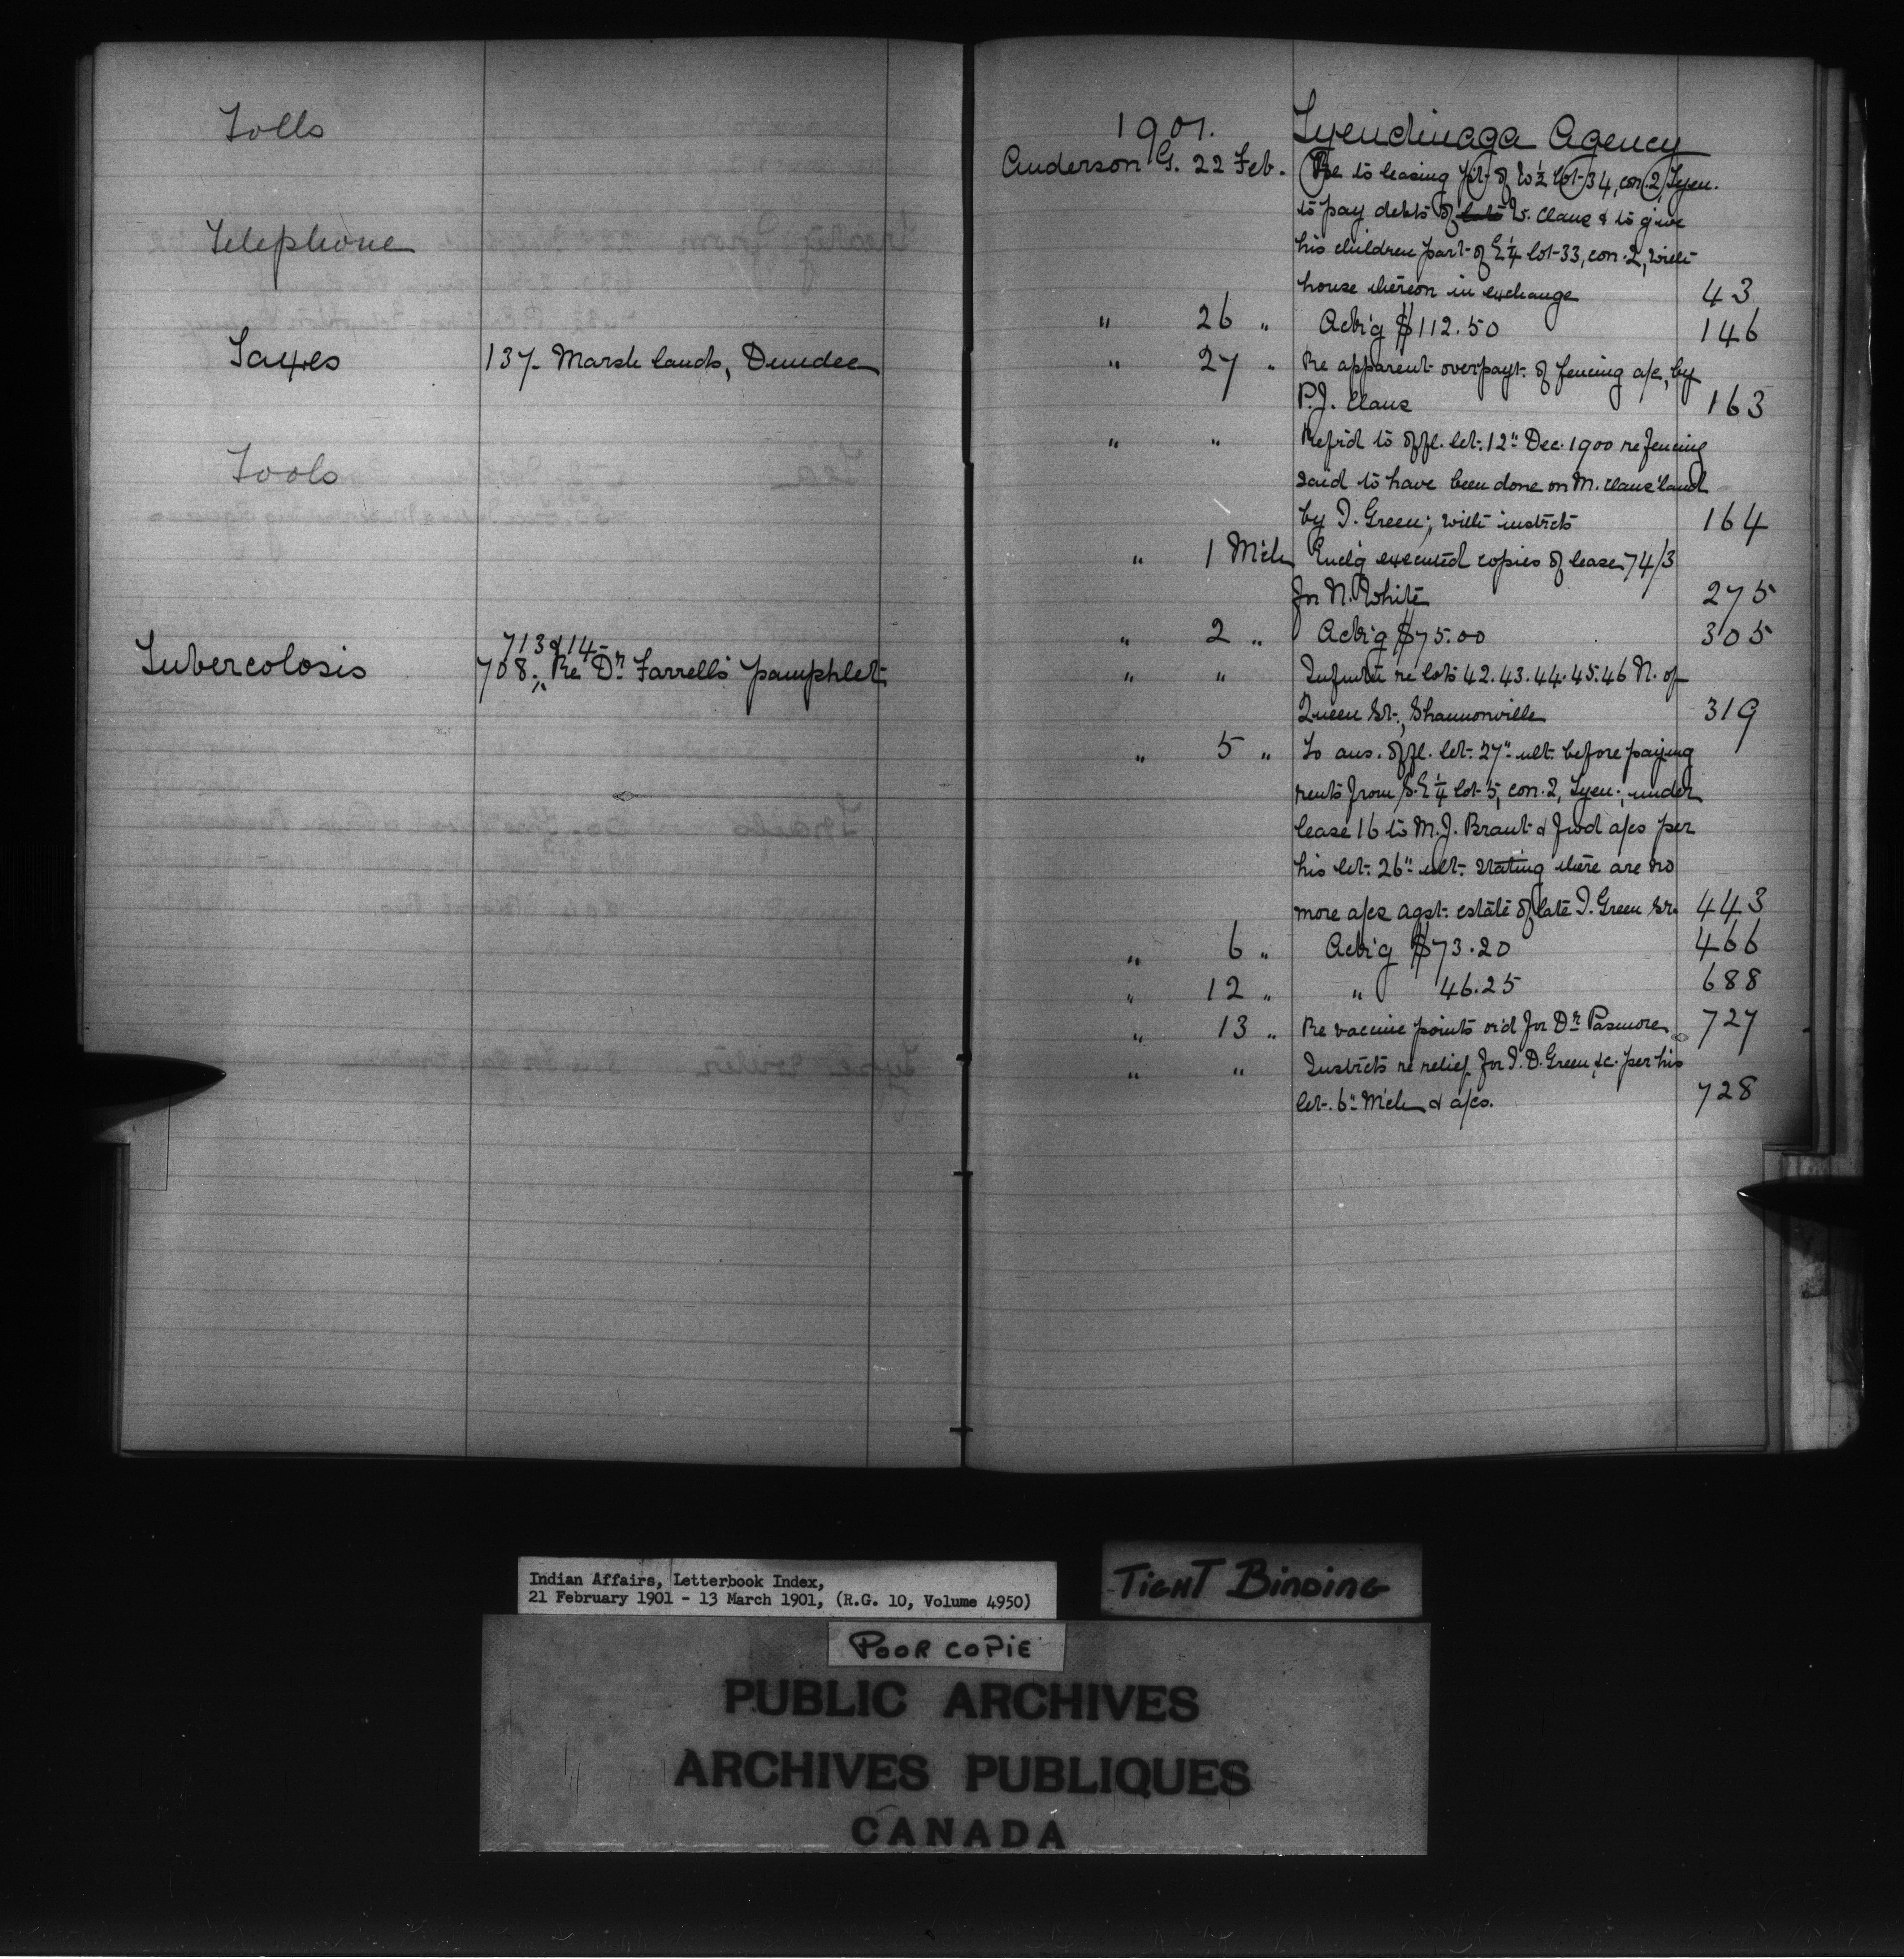 Tolls
Telephone
Taxes 137- Marsh lands, Dundee
Tools
713 & 14-
Tubercolosis 708; Re Dr. Farrell's pamphlet
1901. Tyendinaga Agency
Anderson G. 22 Feb. Re to leasing pt. of W½ lot 34, con. 2, Tyen.
to pay debts of W. Claus & to give
his children part of E¼ lot 33, con. 2, with
house thereon in exchange 43
" 26 " Ack'g $112.50 146
" 27 " Re apparent overpayt. of fencing a/c, by
P.J. Claus 163
" " Refrd to offl. let. 12" Dec. 1900 re fencing
said to have been done on M. Claus' land
by I. Green; with instrcts 164
" 1 Mch Encl'g executed copies of lease 74/3
for N. White 275
" 2 " Ack'g $75.00 305
" " Infmtn re lots 42.43.44.45.46 N. of
Queen St., Shannonville 319
" 5 " To ans. offl. let. 27" ult. before paying
rents from S.E¼ lot 5, con. 2, Tyen., under
lease 16 to M.J. Brant & fwd a/cs per
his let. 26" ult. stating there are no
more a/cs agst. estate of late I. Green Sr. 443
" 6 " Ack'g $73.20 466
" 12 " " 46.25 688
" 13 " Re vaccine points or'd for Dr. Pasmore 727
" " Instrcts re relief for I.D. Green, &c. per his
let. 6" Mch & a/cs. 728
Indian Affairs, Letterbook Index,
21 February 1901 - 13 March 1901, (R.G. 10, Volume 4950)
TIGHT BINDING
POOR COPIE
PUBLIC ARCHIVES
ARCHIVES PUBLIQUES
CANADA